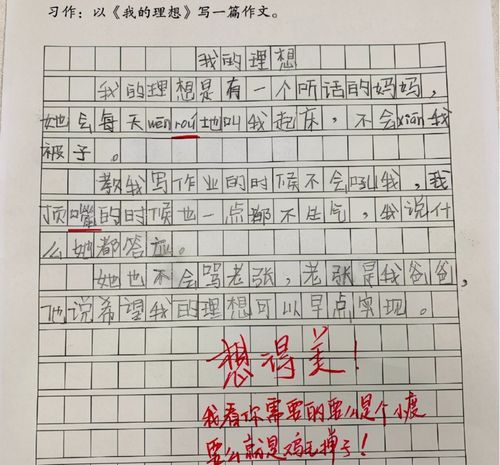 习作：以《我的理想》写一篇作文。
我的理想
我的理想是有一个听话的妈妈，
她会每天wēn rou地叫我起床，不会xian我
被子。
教我写作业的时候不会吼我，我
顶嘴的时候也一点都不生气，我说什
么她都答应。
她也不会骂老张，老张是我爸爸，
他说希望我的理想可以早点实现。
想得美！
我看你需要的要么是个小鹿
要么就是鸡毛掸子！